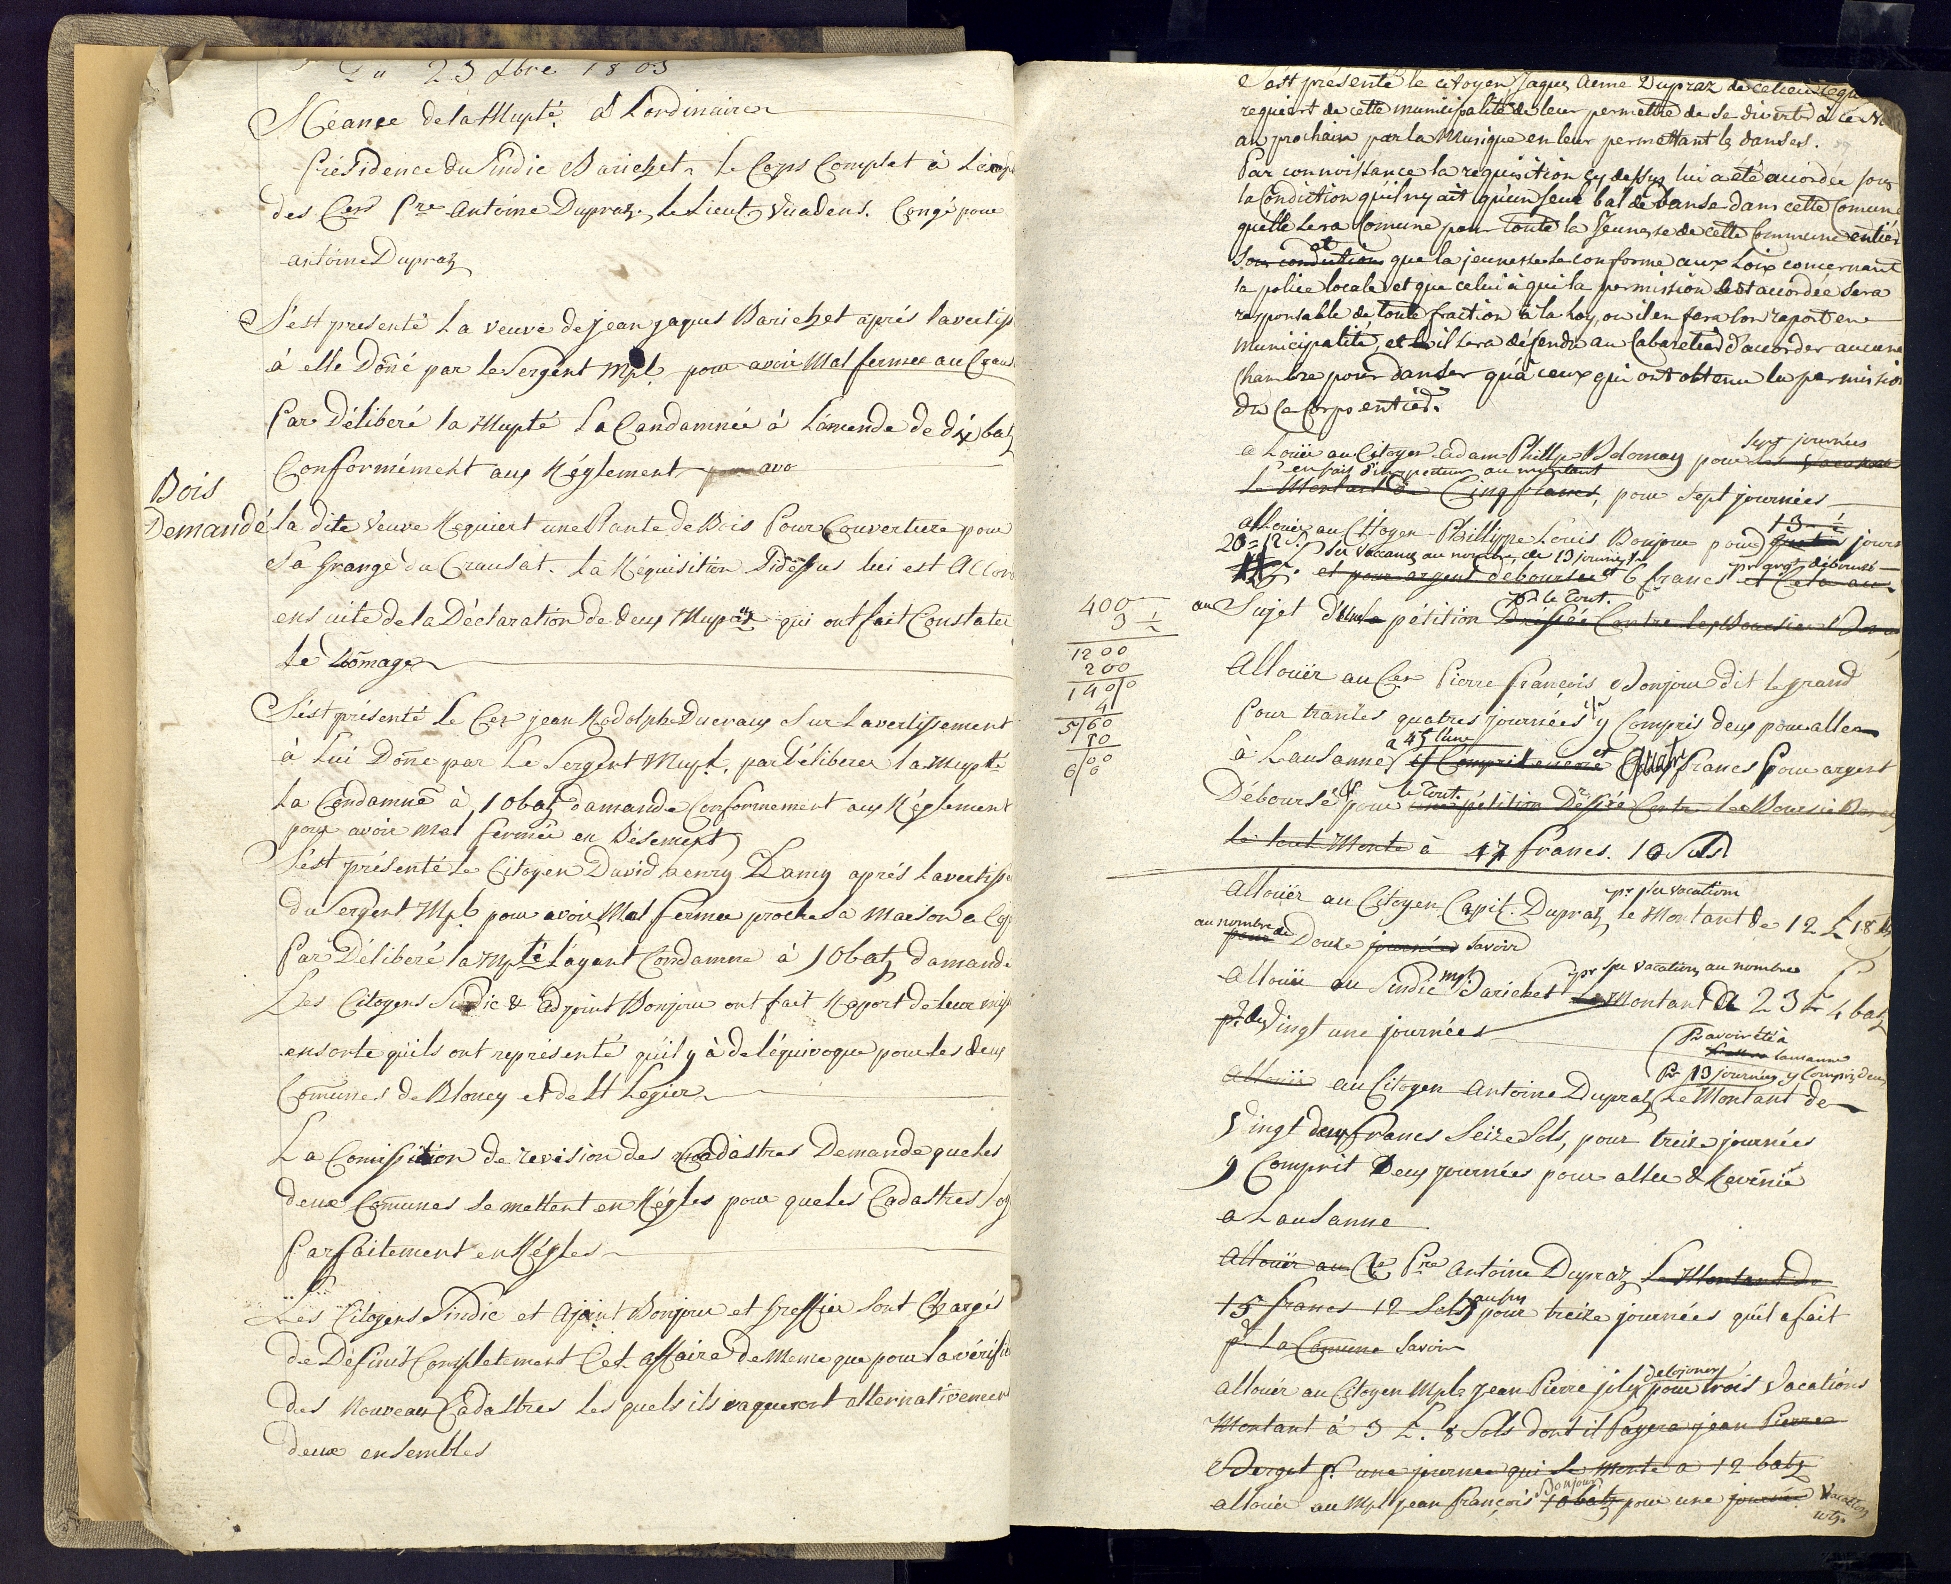 Du 23 xbre 1803
Séance de la Mupté. à Lordinaire
Présidence du Sindic Barichet. Le Corps Complet à L'éxep
des Cens Pre Antoine Dupraz, Le Lieut Vuadens. Congé pour
antoine Dupraz
S'ést presenté La veuve de jean jaques Barichet aprés Lavertiss
à elle Doñé par le Sergent Mpl. pour avoir Mal fermer au Craus
Par Déliberé la Mupté La Condamnée à L'amende de dix batz
Conformément aux Réglement avo
Bois
Demandé
la dite Veuve Requiert une Plante de Bois Pour Couverture pour
Sa Grange du Crausat. La Réquisition Sidéssus lui est Accor
ensuite de la Déclaration de deux Mupux qui ont fait Constater
Le Dômage
S'ést présenté Le Cen jean Rodolphe Ducraux Sur L'avertissement
à Lui Doñe par Le Sergent Mupl. par Déliberer la Mupté
La Condamné à 10 batz damande Conformement aux Réglement
pour avoir Mal fermée en Désement
S'ést présenté Le Citoyen David henry Lamy aprés Lavertisse
du Sergent Mpl pour avoir Mal fermer proche Sa maison a
Par Déliberé la mpté L'ayant Condamne à 10 batz damande
Les Citoyens Sindic & Adjoint Bonjour ont fait Raport de leur mis
ensorte qu'ils ont représenté qu'il y à de l'équivoque pour les deux
Coṁunes de Blonay et de St Légier
La Comission de revision des Cadastres Demande que les
deux Comunes Se mettent en Régles pour que les Cadastres Soy
Parfaitement en Régles
Les Citoyens Sindic et Ajoint Bonjour et Greffier Sont Chargés
de Définir Completement Cet affaire de Meme que pour la vérifi
des Nouveau Cadastres Les quels ils vaqueront alternativement
deux ensembles
S'est présenté le citoyen Jaques Aeme Dupraz de ce lieu lequ
requiert de cette municipalité de leur permettre de se divertir à ce N
an prochain par la Musique en leur permettant les danses.
Par connoissance la requisition cy dessus lui a été accordée sous
la Condiction qu'il ny ait qu'un seul bal de danse dans cette Comune
quelle sera Comune pour toute la Jeunesse de cette Commune entier
et
Sous condiction que la jeunesse se conforme aux Loix concernant
la police locale et que celui à qui la permission est accordée sera
responsable de toute fraction à la loy, ou il en fera son raport en
Municipalité, et il sera défendu au Cabaretier d'accorder aucune
Chambre pour danser qu'à ceux qui ont obtenu la permission
du Ce Corps entier.
Sept journées
a Loüer au Citoyen Adam Philip Delomay pour
en fait d'inspecteur au montant
Le Montant de Cinq francs, pour Sept journées
13
allouer au Citoyen Phillippe Louis Bonjour pour quatre journ
20 = 12 s. ses vacans au nombre de 13 journées
et pour argent debourser et 6 francs pr argt déboursé et Cela au
pr le tout.
au Sujet d'une pétition Dréssée Contre le Boursier
400
3 ½
1200
200
1400
4
5|60
80
00
6|6
Alloüer au Cen Pierre françois Bonjour dit le grand
Pour trantes quatres journées y Compris deux pour aller
a 4 s l'une
à Lausanne et Comprit encore et quatre francs Pour argent
le tout.
Déboursé pour une pétition Dréssé Contre Le Boursier
Le tout Monte à 47 francs. 10 Sols
pr ses vacation
Alloüér au Citoyen Capit. Dupraz le Montant de 12 £ 18
au nombre de
pour Douze journées Savoir
pr ses vacations au nombre
Alloüér au Sindic mpl Barichet Le Montant de 23 fr 4 batz
pr des Vingt une journées
Pr avoir été à
Lausanne
pr 13 journées y Compris deux
Alloüé au Citoyen Antoine Dupraz Le Montant de
Vingt deux francs Seize Sols, pour treize journées
y Comprit Deux Journées pour aller & Revénir
a Lausanne
Alloüer au Ce Pre Antoine Dupraz Le Montant de
15 francs 12 Sols aussy pour treize journées qu'il a fait
pr La Comune Savoir
allouér au Citoyen Mpl Jean Pierre joly pour trois Vacations
Montant à 3 £. 8 Sols dont il Payera jean Pierre
pr une journee qui Se monte a 12 batz
Bonjour
allouér au Mpl jean françois 10 batz pour une journée Vacation